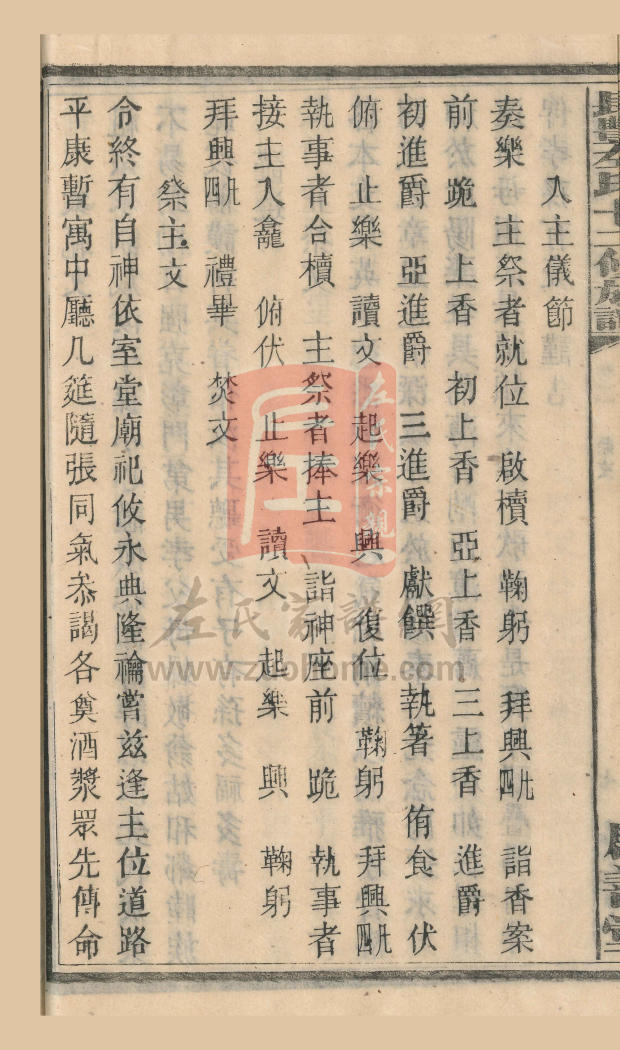 入主儀節
奏樂 主祭者就位 啟櫝 鞠躬 拜興四凡 詣香案
前跪 上香 初上香 亞上香 三上香 進爵
初進爵 亞進爵 三進爵 獻饌 執箸 侑食 伏
俯 止樂 讀文 起樂 興 復位 鞠躬 拜興四凡
執事者合櫝 主祭者捧主 詣神座前 跪 執事者
接主入龕 俯伏 止樂 讀文 起樂 興 鞠躬
拜興四凡 禮畢 焚文
祭主文
令終有自神依室堂廟祀攸永典隆禴嘗茲逢主位道路
平康暫寓中廳几筵隨張同氣叅謁各奠酒漿眾先傳命
左氏宗親
左氏家譜網
www.zuohome.com